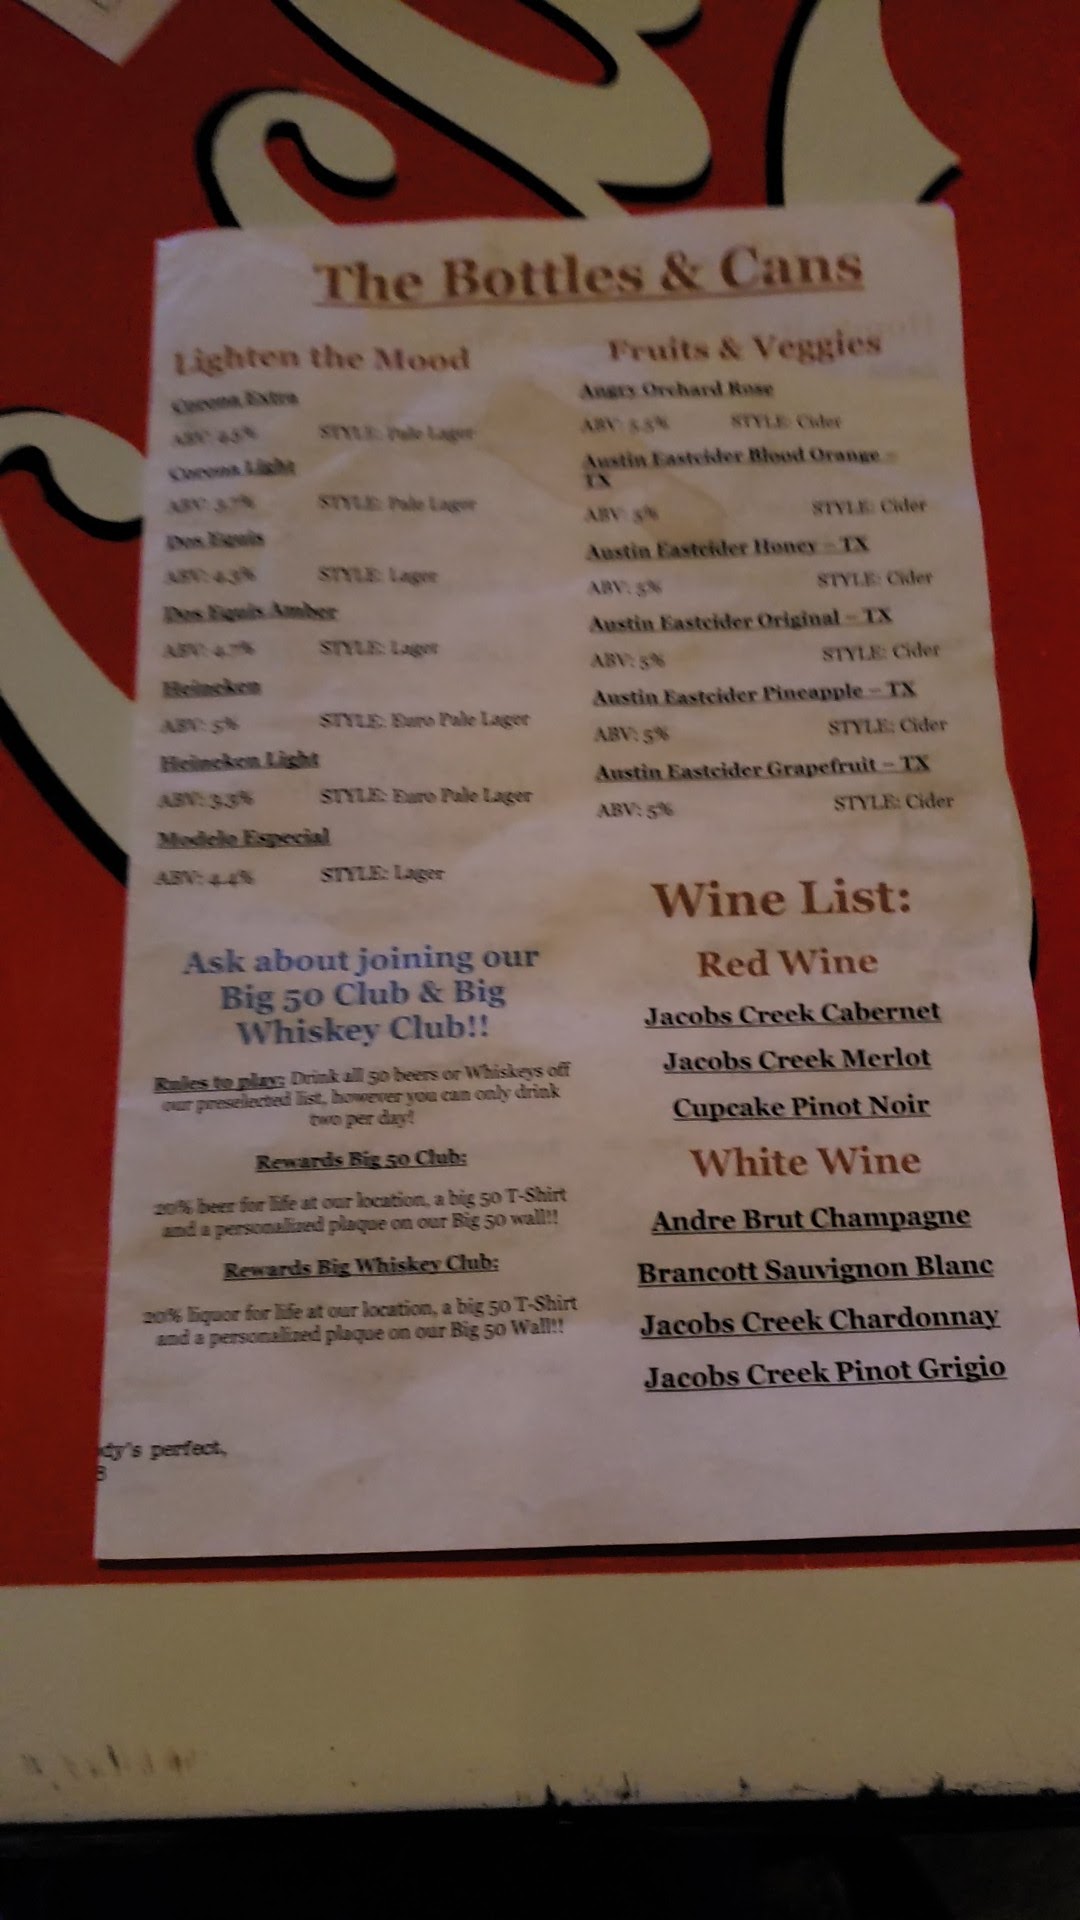 The Bottles & Cans
Lighten the Mood
Corona Extra
ABV: 4.5% STYLE: Pale Lager
Corona Light
ABV: 3.7% STYLE: Pale Lager
Dos Equis
ABV: 4.3% STYLE: Lager
Dos Equis Amber
ABV: 4.7% STYLE: Lager
Heineken
ABV: 5% STYLE: Euro Pale Lager
Heineken Light
ABV: 3.3% STYLE: Euro Pale Lager
Modelo Especial
ABV: 4.4% STYLE: Lager
Ask about joining our
Big 50 Club & Big
Whiskey Club!!
Rules to play: Drink all 50 beers or Whiskeys off
our preselected list, however you can only drink
two per day!
Rewards Big 50 Club:
20% beer for life at our location, a big 50 T-Shirt
and a personalized plaque on our Big 50 wall!!
Rewards Big Whiskey Club:
20% liquor for life at our location, a big 50 T-Shirt
and a personalized plaque on our Big 50 Wall!!
dy's perfect,
Fruits & Veggies
Angry Orchard Rose
ABV: 5.5% STYLE: Cider
Austin Eastcider Blood Orange –
TX
ABV: 5% STYLE: Cider
Austin Eastcider Honey – TX
ABV: 5% STYLE: Cider
Austin Eastcider Original – TX
ABV: 5% STYLE: Cider
Austin Eastcider Pineapple – TX
ABV: 5% STYLE: Cider
Austin Eastcider Grapefruit – TX
ABV: 5% STYLE: Cider
Wine List:
Red Wine
Jacobs Creek Cabernet
Jacobs Creek Merlot
Cupcake Pinot Noir
White Wine
Andre Brut Champagne
Brancott Sauvignon Blanc
Jacobs Creek Chardonnay
Jacobs Creek Pinot Grigio